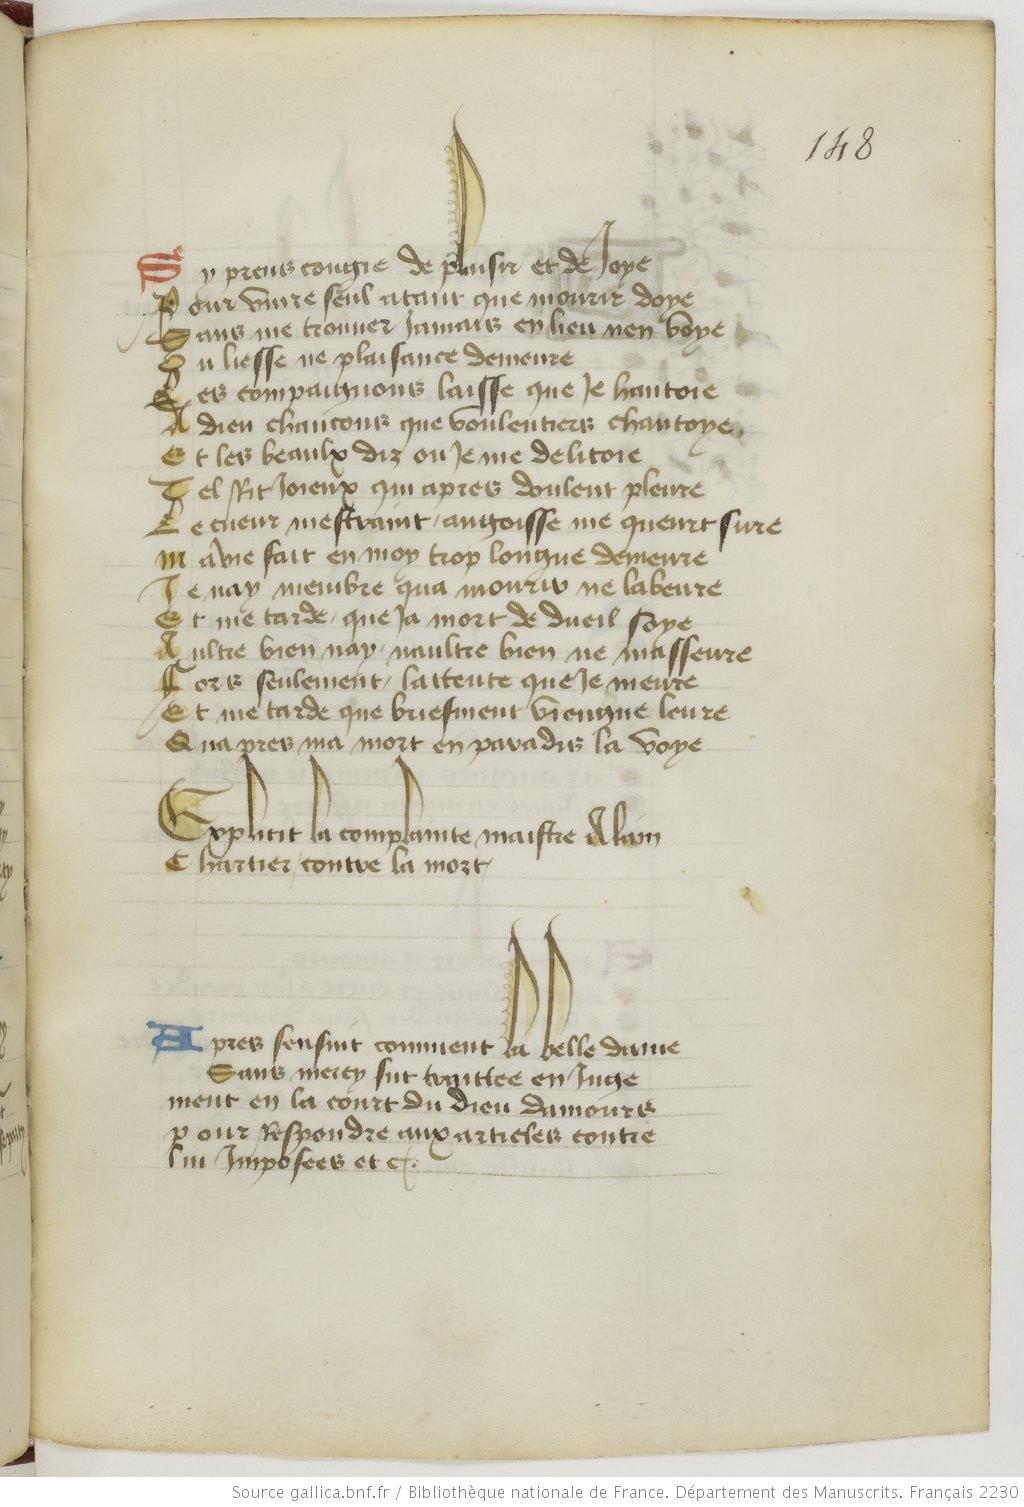 148
Sy prens congie de plaisir et de Joye
Pour viure seul atant que mourir doye
Sans me trouuer Jamais en lieu nen voye
Ou liesse ne plaisance demeure
Les compaignons laisse que Je hantoie
Adieu chancons que voulentiers chantoye
Et les beaulx diz ou Je me delitoie
Tel Rit Joieux qui apres doulent pleure
Le cueur mestraint / angoisse me queurt sure
Ma vie fait en moy trop longue demeure
Je nay membre qua mourir ne labeure
Et me tarde / que Ja mort de dueil soye
Aultre bien nay / naultre bien ne masseure
Fors seulement / lattente que Je meure
Et me tarde que briefment viengne leure
Qua pres ma mort en paradis la voye
Explicit la complainte maistre Alain
Chartier / contre la mort
Apres sensuit comment la belle dame
Sans mercy fut traittee en Juge
ment en la court du dieu damours
pour Respondre aux articles contre
lui Imposees et c
Source gallica.bnf.fr / Bibliothèque nationale de France. Département des Manuscrits. Français 2230